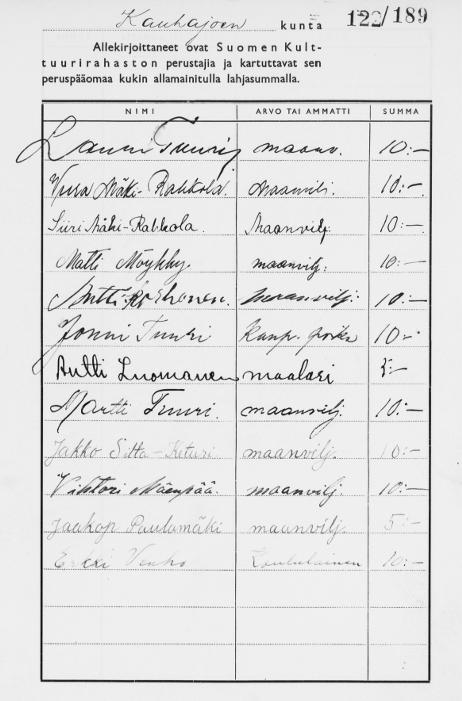 Kauhajoen kunta 122/189
Allekirjoittaneet ovat Suomen Kult-
tuurirahaston perustajia ja kartuttavat sen
peruspääomaa kukin allamainitulla lahjasummalla.
NIMI ARVO TAI AMMATTI SUMMA
Lauri Tuuri maanv. 10:-
Mäki-Rahkola. Maanvilj. 10:-
Siiri Mäki-Rahkola. Maanvilj. 10:-
Matti Möykky maanvilj. 10:-
Antti maanvilj. 10:-
Jouni Tuuri kaup. 10:-
Antti Luomanen maalari 5:-
Martti Tuuri. maanvilj. 10:-
Jakko maanvilj. 10:-
Vihtori Mäenpää. maanvilj. 10:-
Jaakop Paulamäki maanvilj. 5:-
Erkki Koululainen 10:-